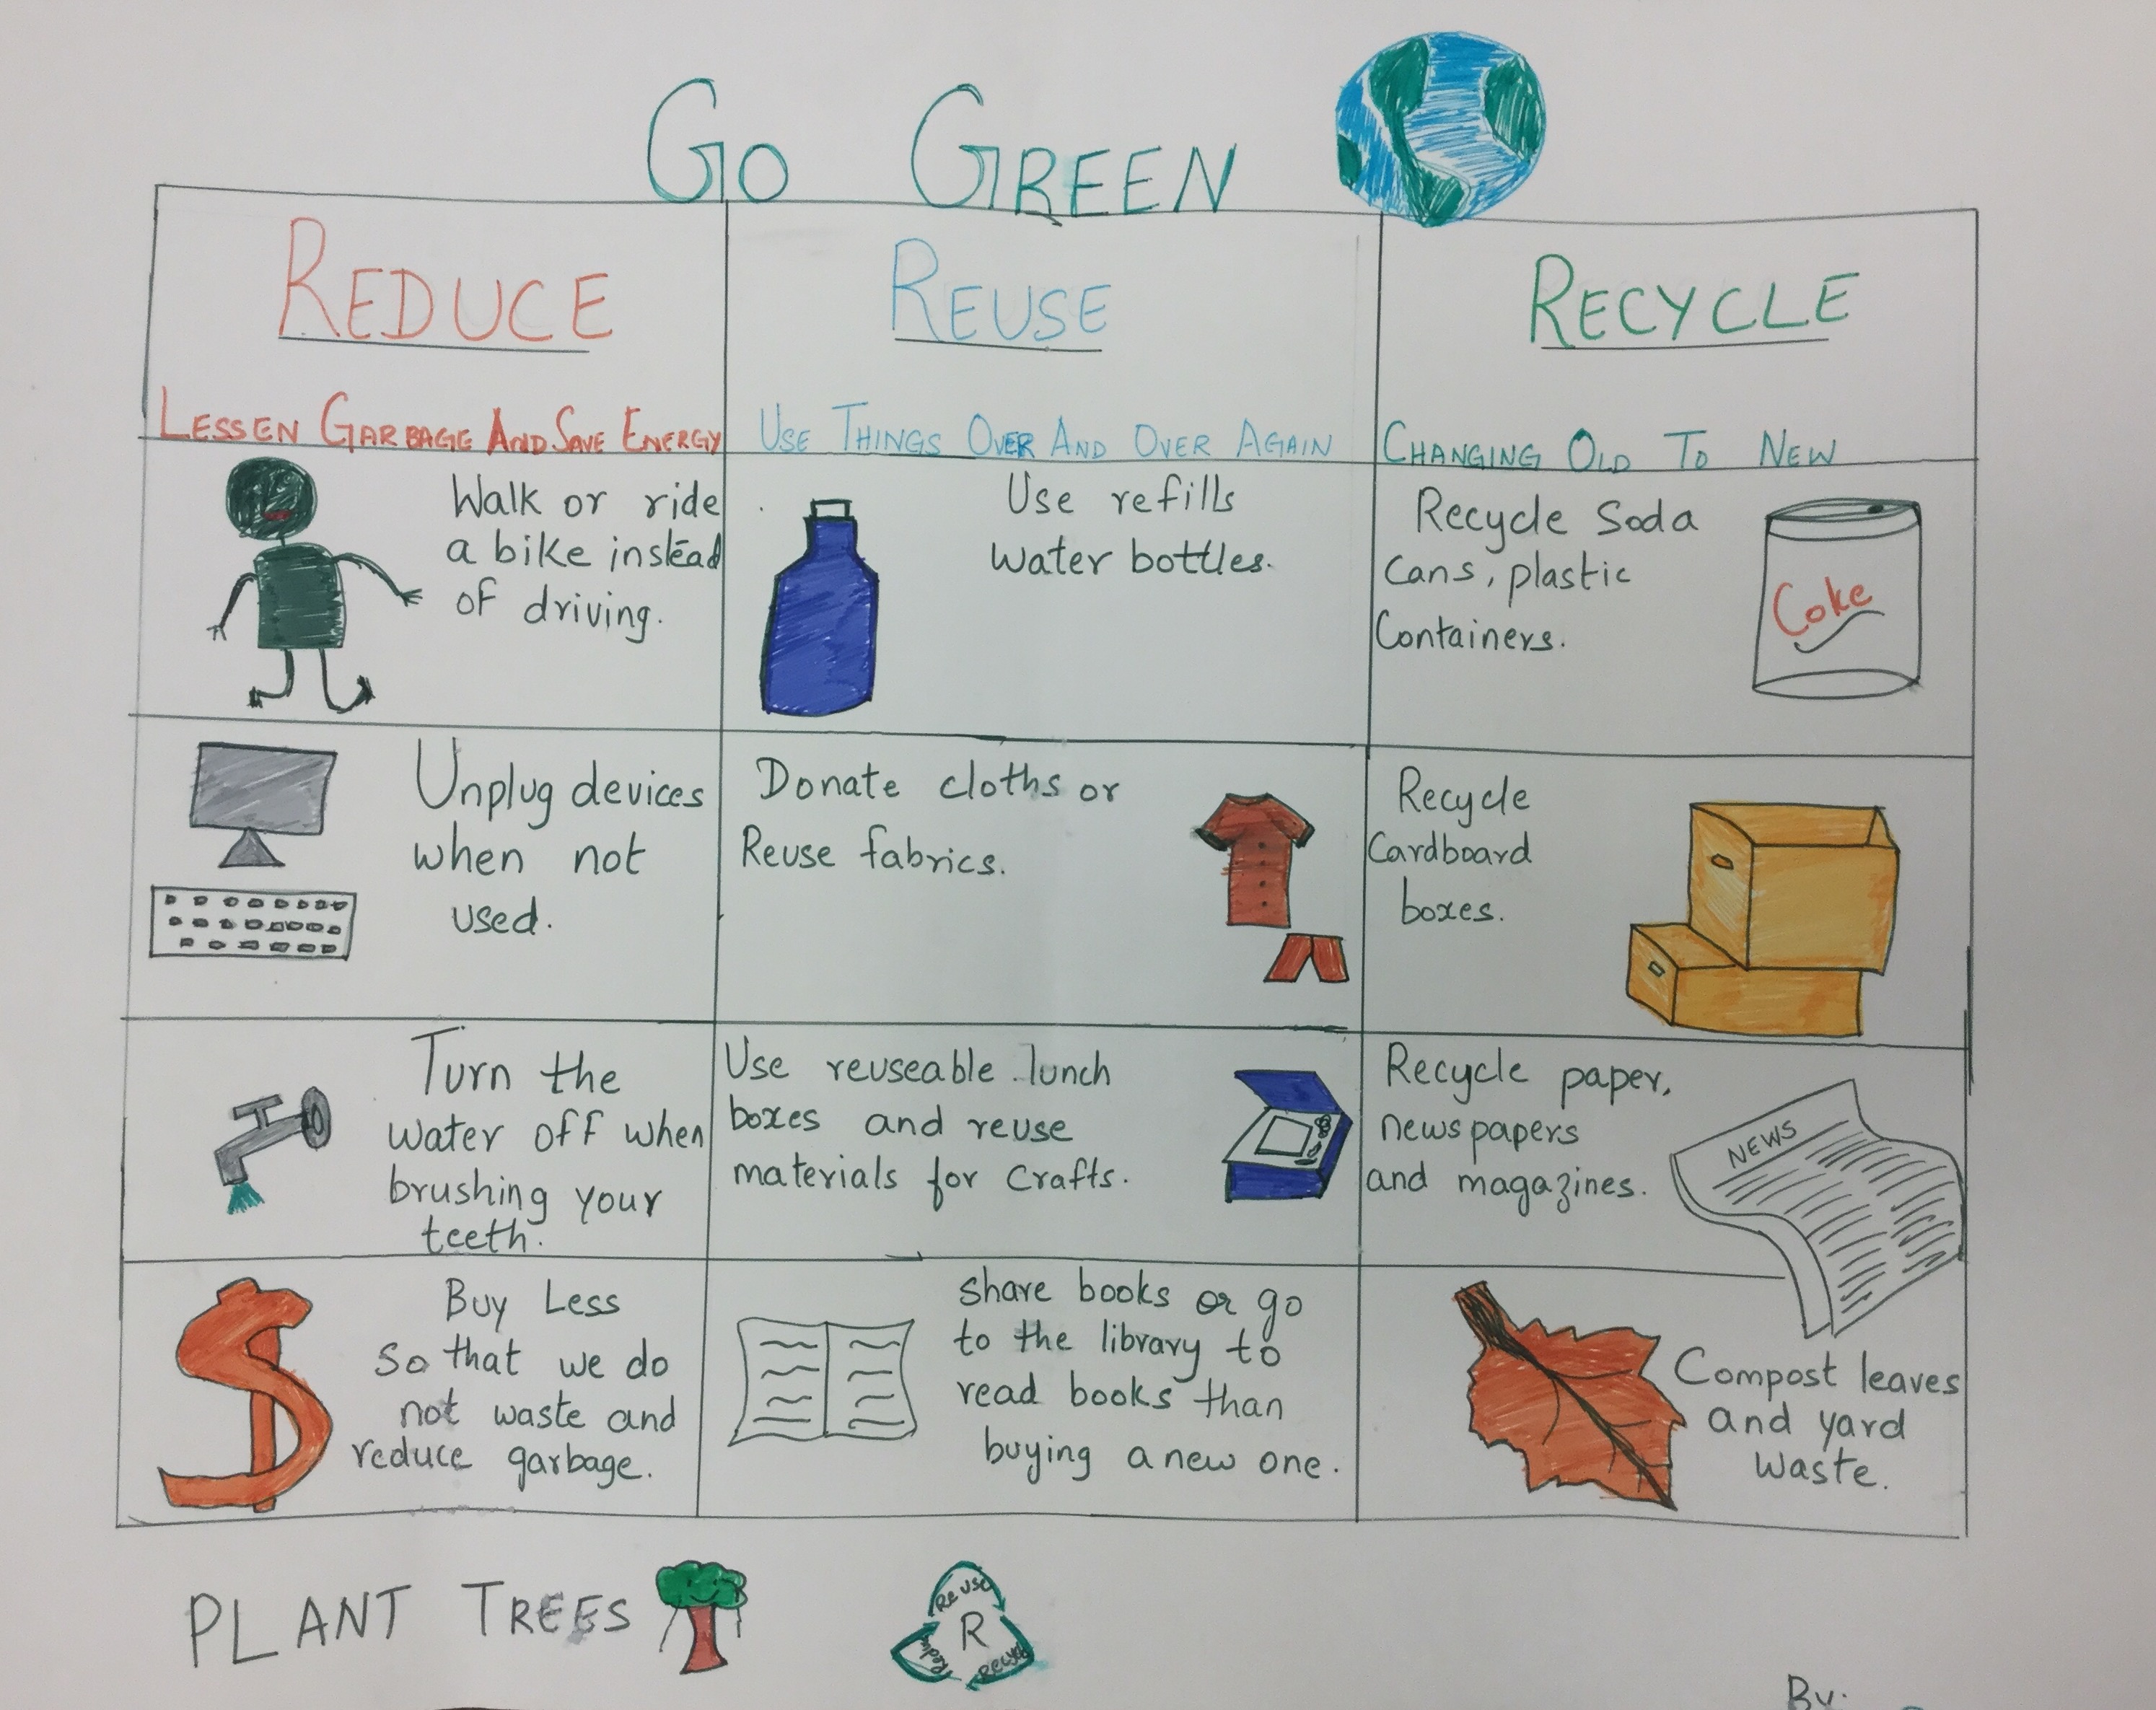 GO GREEN
REDUCE
LESSEN GARBAGE AND SAVE ENERGY
Walk or ride
a bike instead
of driving.
Unplug devices
when not
used.
Turn the
water off when
brushing your
teeth.
Buy Less
So that we do
not waste and
reduce garbage.
REUSE
USE THINGS OVER AND OVER AGAIN
Use refills
water bottles.
Donate cloths or
Reuse fabrics.
Use reuseable lunch
boxes and reuse
materials for crafts.
share books or go
to the library to
read books than
buying a new one.
RECYCLE
CHANGING OLD TO NEW
Recycle Soda
cans, plastic
Containers.
Coke
Recycle
Cardboard
boxes.
Recycle paper,
newspapers
and magazines.
NEWS
Compost leaves
and yard
waste.
PLANT TREES
Reuse
R
Reduce
Recycle
By: